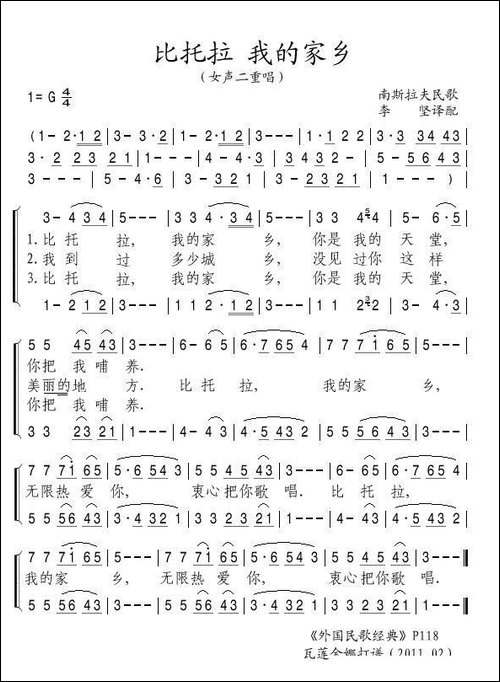 比托拉 我的家乡
（女声二重唱）
1= G 4/4
南斯拉夫民歌
李 坚译配
(1- 2·1 2 | 3- 3· 1 | 2- 3· 2 | 3--- | 1· 1 2 2 | 3· 3 34 43 |
3· 2 23 21 | 1--- | 4- 4· 3 | 2--3 2 | 3- 4· 3 | 5- 5 64 43 |
3--- | 5- 4· 6 | 3- 32 1 | 3- 23 21 | 1--- )
3- 4 3 4 | 5--- | 3 3 4 · 3 4 | 5--- | 3 3 4 4 | 5- 6· 5 |
1. 比 托 拉， 我的家 乡， 你是 我的 天 堂，
2. 我 到 过 多少城 乡， 没见 过你 这 样
3. 比 托 拉， 我的家 乡， 你是 我的 天 堂，
1- 2 1 2 | 3--- | 1 1 2 · 1 2 | 3--- | 1 1 2 2 | 3- 4· 3 |
5 5 45 43 | 3--- | 6- 6 5 | 6· 7 65 4 | 7 7 7 1 65 | 5--- |
你把 我 哺 养.
美丽的地 方. 比 托 拉， 我的家 乡，
你把 我 哺 养.
3 3 23 21 | 1--- | 4- 4 3 | 4· 5 43 2 | 5 5 5 64 3 | 3--- |
7 7 71 65 | 5· 6 54 3 | 5 5 4 54 43 | 3--- | 6- 65 | 6· 7 65 4 |
无限热 爱 你， 衷心 把你歌 唱. 比 托 拉，
5 5 56 43 | 3· 4 32 1 | 3 3 2 32 21 | 1--- | 4- 43 | 4· 5 43 2 |
7 7 71 65 | 5--- | 7 7 71 65 | 5· 6 54 3 | 5 5 4 5 43 | 3---
我的家 乡， 无限热 爱 你， 衷心把你歌 唱.
5 5 56 43 | 3--- | 5 5 56 43 | 3· 4 32 1 | 3 3 2 3 21 | 1---
《外国民歌经典》P118
瓦莲金娜打谱（2011.02）